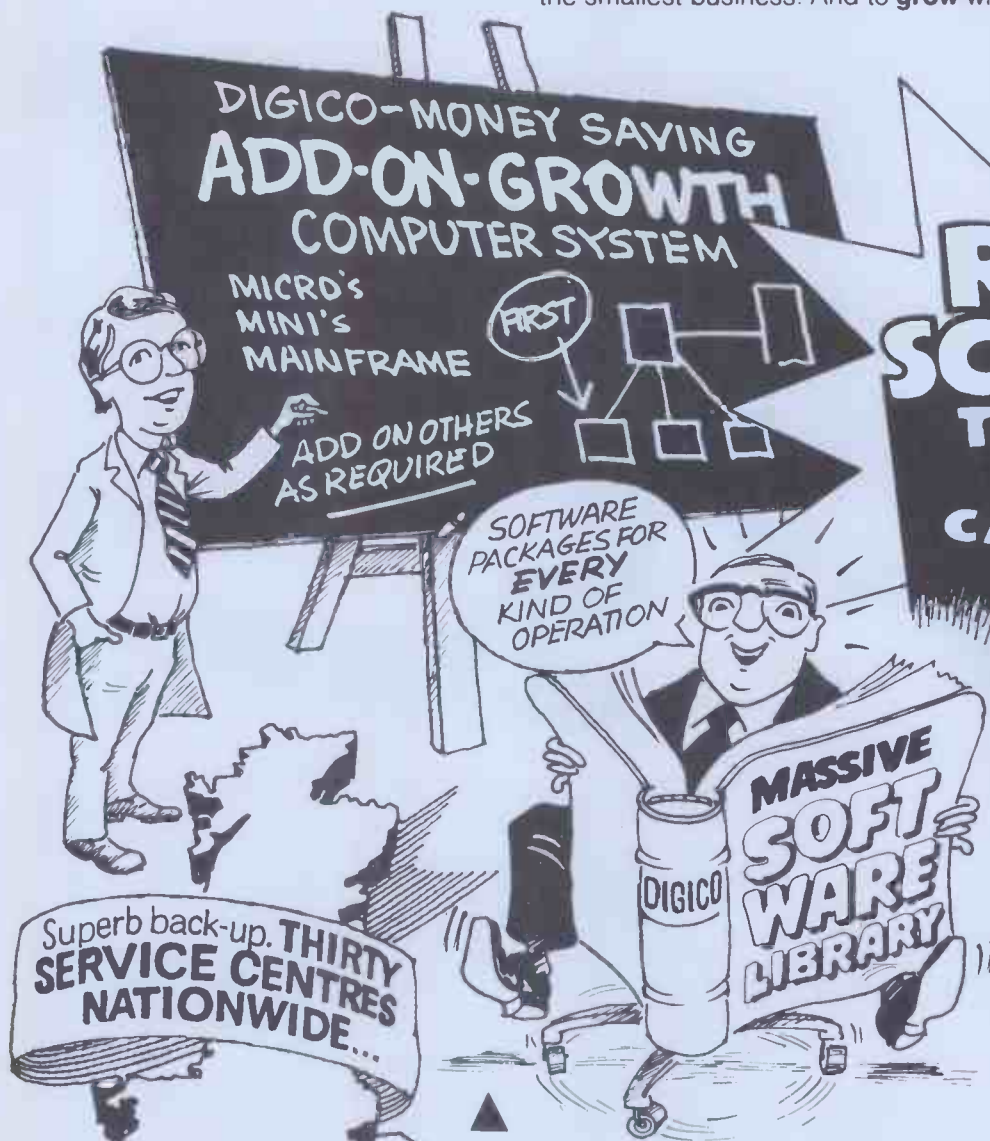 the smallest business. And to grow
DIGICO-MONEY SAVING
ADD-ON-GROWTH
COMPUTER SYSTEM
MICRO'S
MINI'S
MAINFRAME
FIRST
ADD ON OTHERS
AS REQUIRED
SOFTWARE
PACKAGES FOR
EVERY
KIND OF
OPERATION
MASSIVE
SOFT
WARE
LIBRARY
DIGICO
Superb back-up. THIRTY
SERVICE CENTRES
NATIONWIDE...